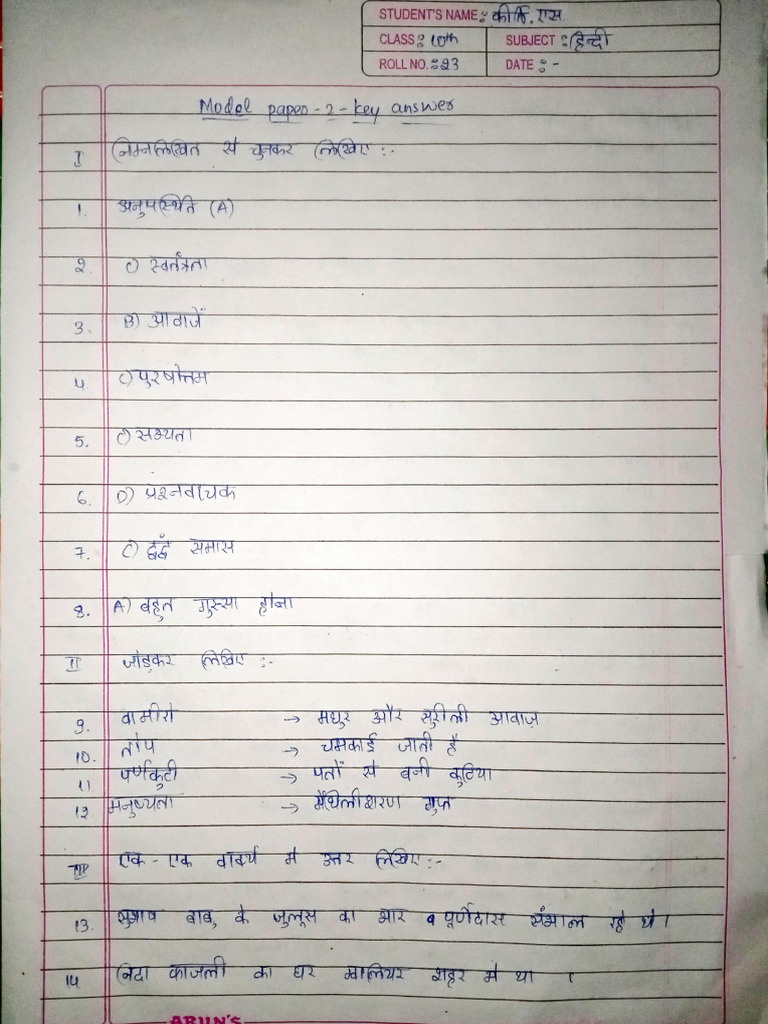 STUDENT'S NAME : कीर्ति. एस
CLASS : 10th SUBJECT : हिन्दी
ROLL NO. : 23 DATE : -
Model paper - 2 - key answer
I निम्नलिखित से चुनकर लिखिए :-
1. अनुपस्थिति (A)
2. C) स्वतंत्रता
3. B) आवाजें
4 C) पुरषोत्तम
5. C) सभ्यता
6. D) प्रश्नवाचक
7. C) द्वंद्वं समास
8. A) बहुत गुस्सा होना
II जोड़कर लिखिए :-
9. वामीरो → मधुर और सुरीली आवाज़
10. तोप → चमकाई जाती है
11 पर्णकुटी → पतों से बनी कुटिया
12. मनुष्यता → मैथिलीशरण गुप्त
III एक - एक वाक्य में उत्तर लिखिए :-
13. सुभाष बाबु के जुलूस का भार पूर्णेदास संभाल रहे थे।
14 निदा फाजली का घर ग्वालियर शहर में था ।
ARUN'S